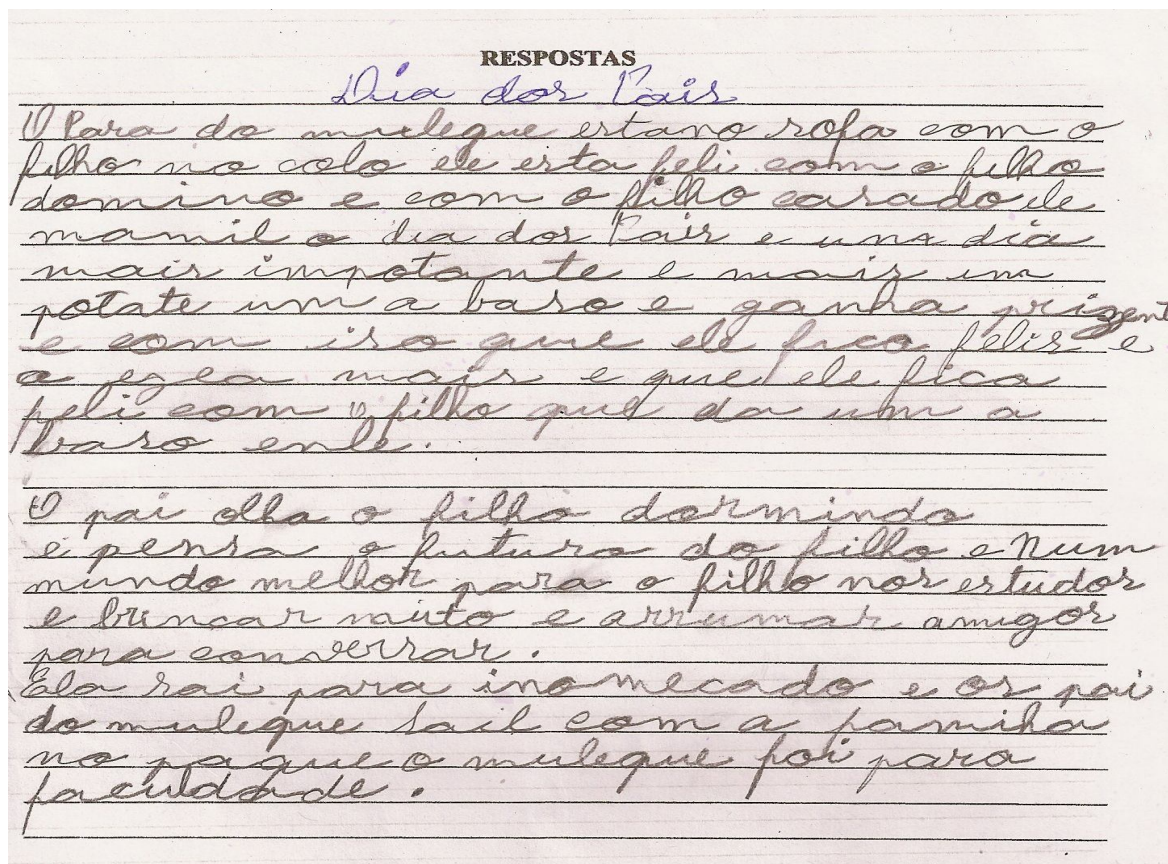 RESPOSTAS
Dia dos Pais
O Para do mulegue estano sofa com o
filho no colo ele esta feli com o filho
domino e com o filho casado ele
mamil o dia dos Pais e uma dia
mais impotante e mais im
potate um a baso e ganha prizent
e com iso que ele fica felis e
a mais e que ele fica
feli com o filho que da um a
baso enle.
O pai olha o filho dormindo
e pensa o futuro do filho e Num
mundo melhor para o filho nos estudos
e brincar muito e arrumar amigos
para conversar.
Ela sai para inomecado e os pai
do mulegue sail com a familha
no paque o mulegue foi para
faculdade.